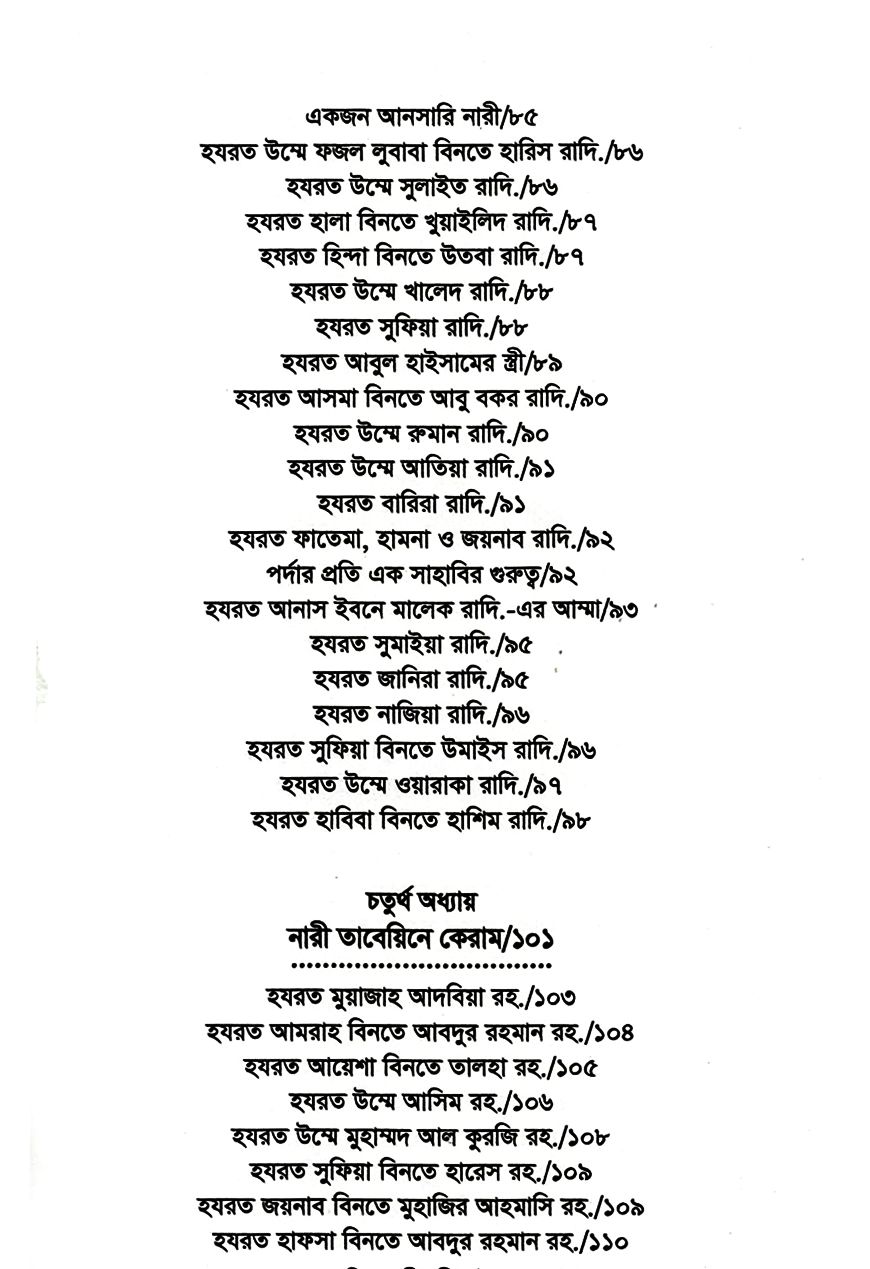 একজন আনসারি নারী/৮৫
হযরত উম্মে ফজল লুবাবা বিনতে হারিস রাদি./৮৬
হযরত উম্মে সুলাইত রাদি./৮৬
হযরত হালা বিনতে খুয়াইলিদ রাদি./৮৭
হযরত হিন্দা বিনতে উতবা রাদি./৮৭
হযরত উম্মে খালেদ রাদি./৮৮
হযরত সুফিয়া রাদি./৮৮
হযরত আবুল হাইসামের স্ত্রী/৮৯
হযরত আসমা বিনতে আবু বকর রাদি./৯০
হযরত উম্মে রুমান রাদি./৯০
হযরত উম্মে আতিয়া রাদি./৯১
হযরত বারিরা রাদি./৯১
হযরত ফাতেমা, হামনা ও জয়নাব রাদি./৯২
পর্দার প্রতি এক সাহাবির গুরুত্ব/৯২
হযরত আনাস ইবনে মালেক রাদি.-এর আম্মা/৯৩
হযরত সুমাইয়া রাদি./৯৫
হযরত জানিরা রাদি./৯৫
হযরত নাজিয়া রাদি./৯৬
হযরত সুফিয়া বিনতে উমাইস রাদি./৯৬
হযরত উম্মে ওয়ারাকা রাদি./৯৭
হযরত হাবিবা বিনতে হাশিম রাদি./৯৮
চতুর্থ অধ্যায়
নারী তাবেয়িনে কেরাম/১০১
হযরত মুয়াজাহ আদবিয়া রহ./১০৩
হযরত আমরাহ বিনতে আবদুর রহমান রহ./১০৪
হযরত আয়েশা বিনতে তালহা রহ./১০৫
হযরত উম্মে আসিম রহ./১০৬
হযরত উম্মে মুহাম্মদ আল কুরজি রহ./১০৮
হযরত সুফিয়া বিনতে হারেস রহ./১০৯
হযরত জয়নাব বিনতে মুহাজির আহমাসি রহ./১০৯
হযরত হাফসা বিনতে আবদুর রহমান রহ./১১০